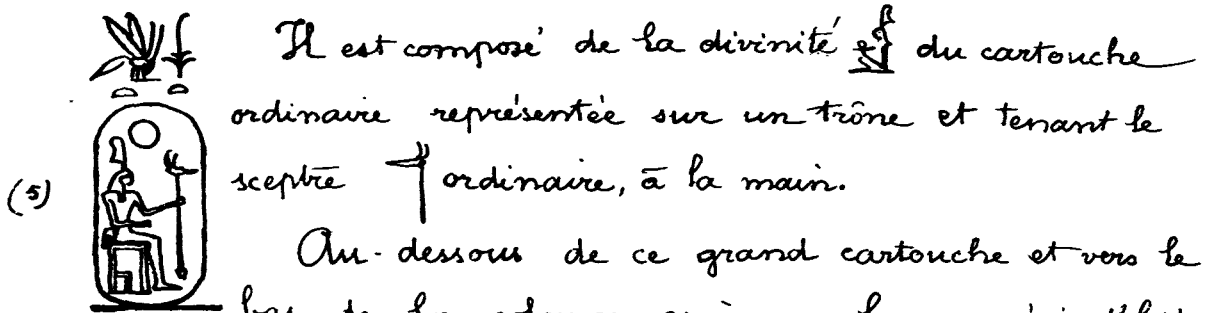 Il est composé de la divinité du cartouche
ordinaire représentée sur un trône et tenant le
(5) sceptre ordinaire, à la main.
Au-dessous de ce grand cartouche et vers le
bas de la